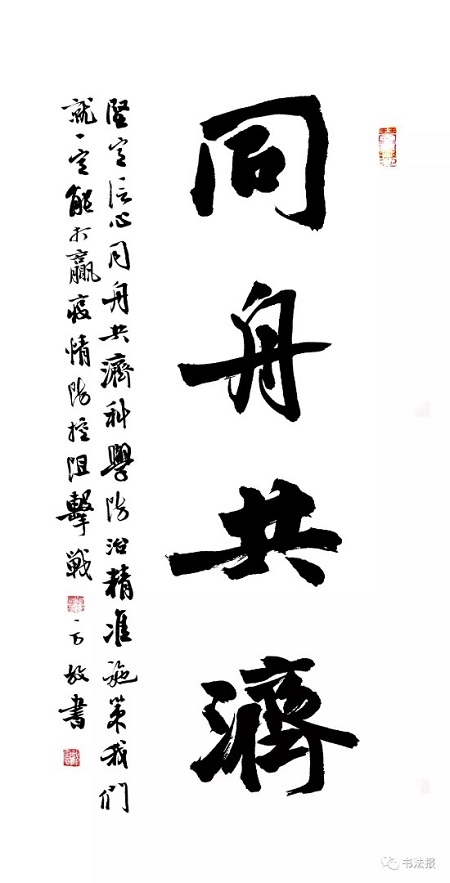 同舟共濟
堅定信心同舟共濟科學防治精准施策我们
就一定能打贏疫情防控阻擊戰
书法报